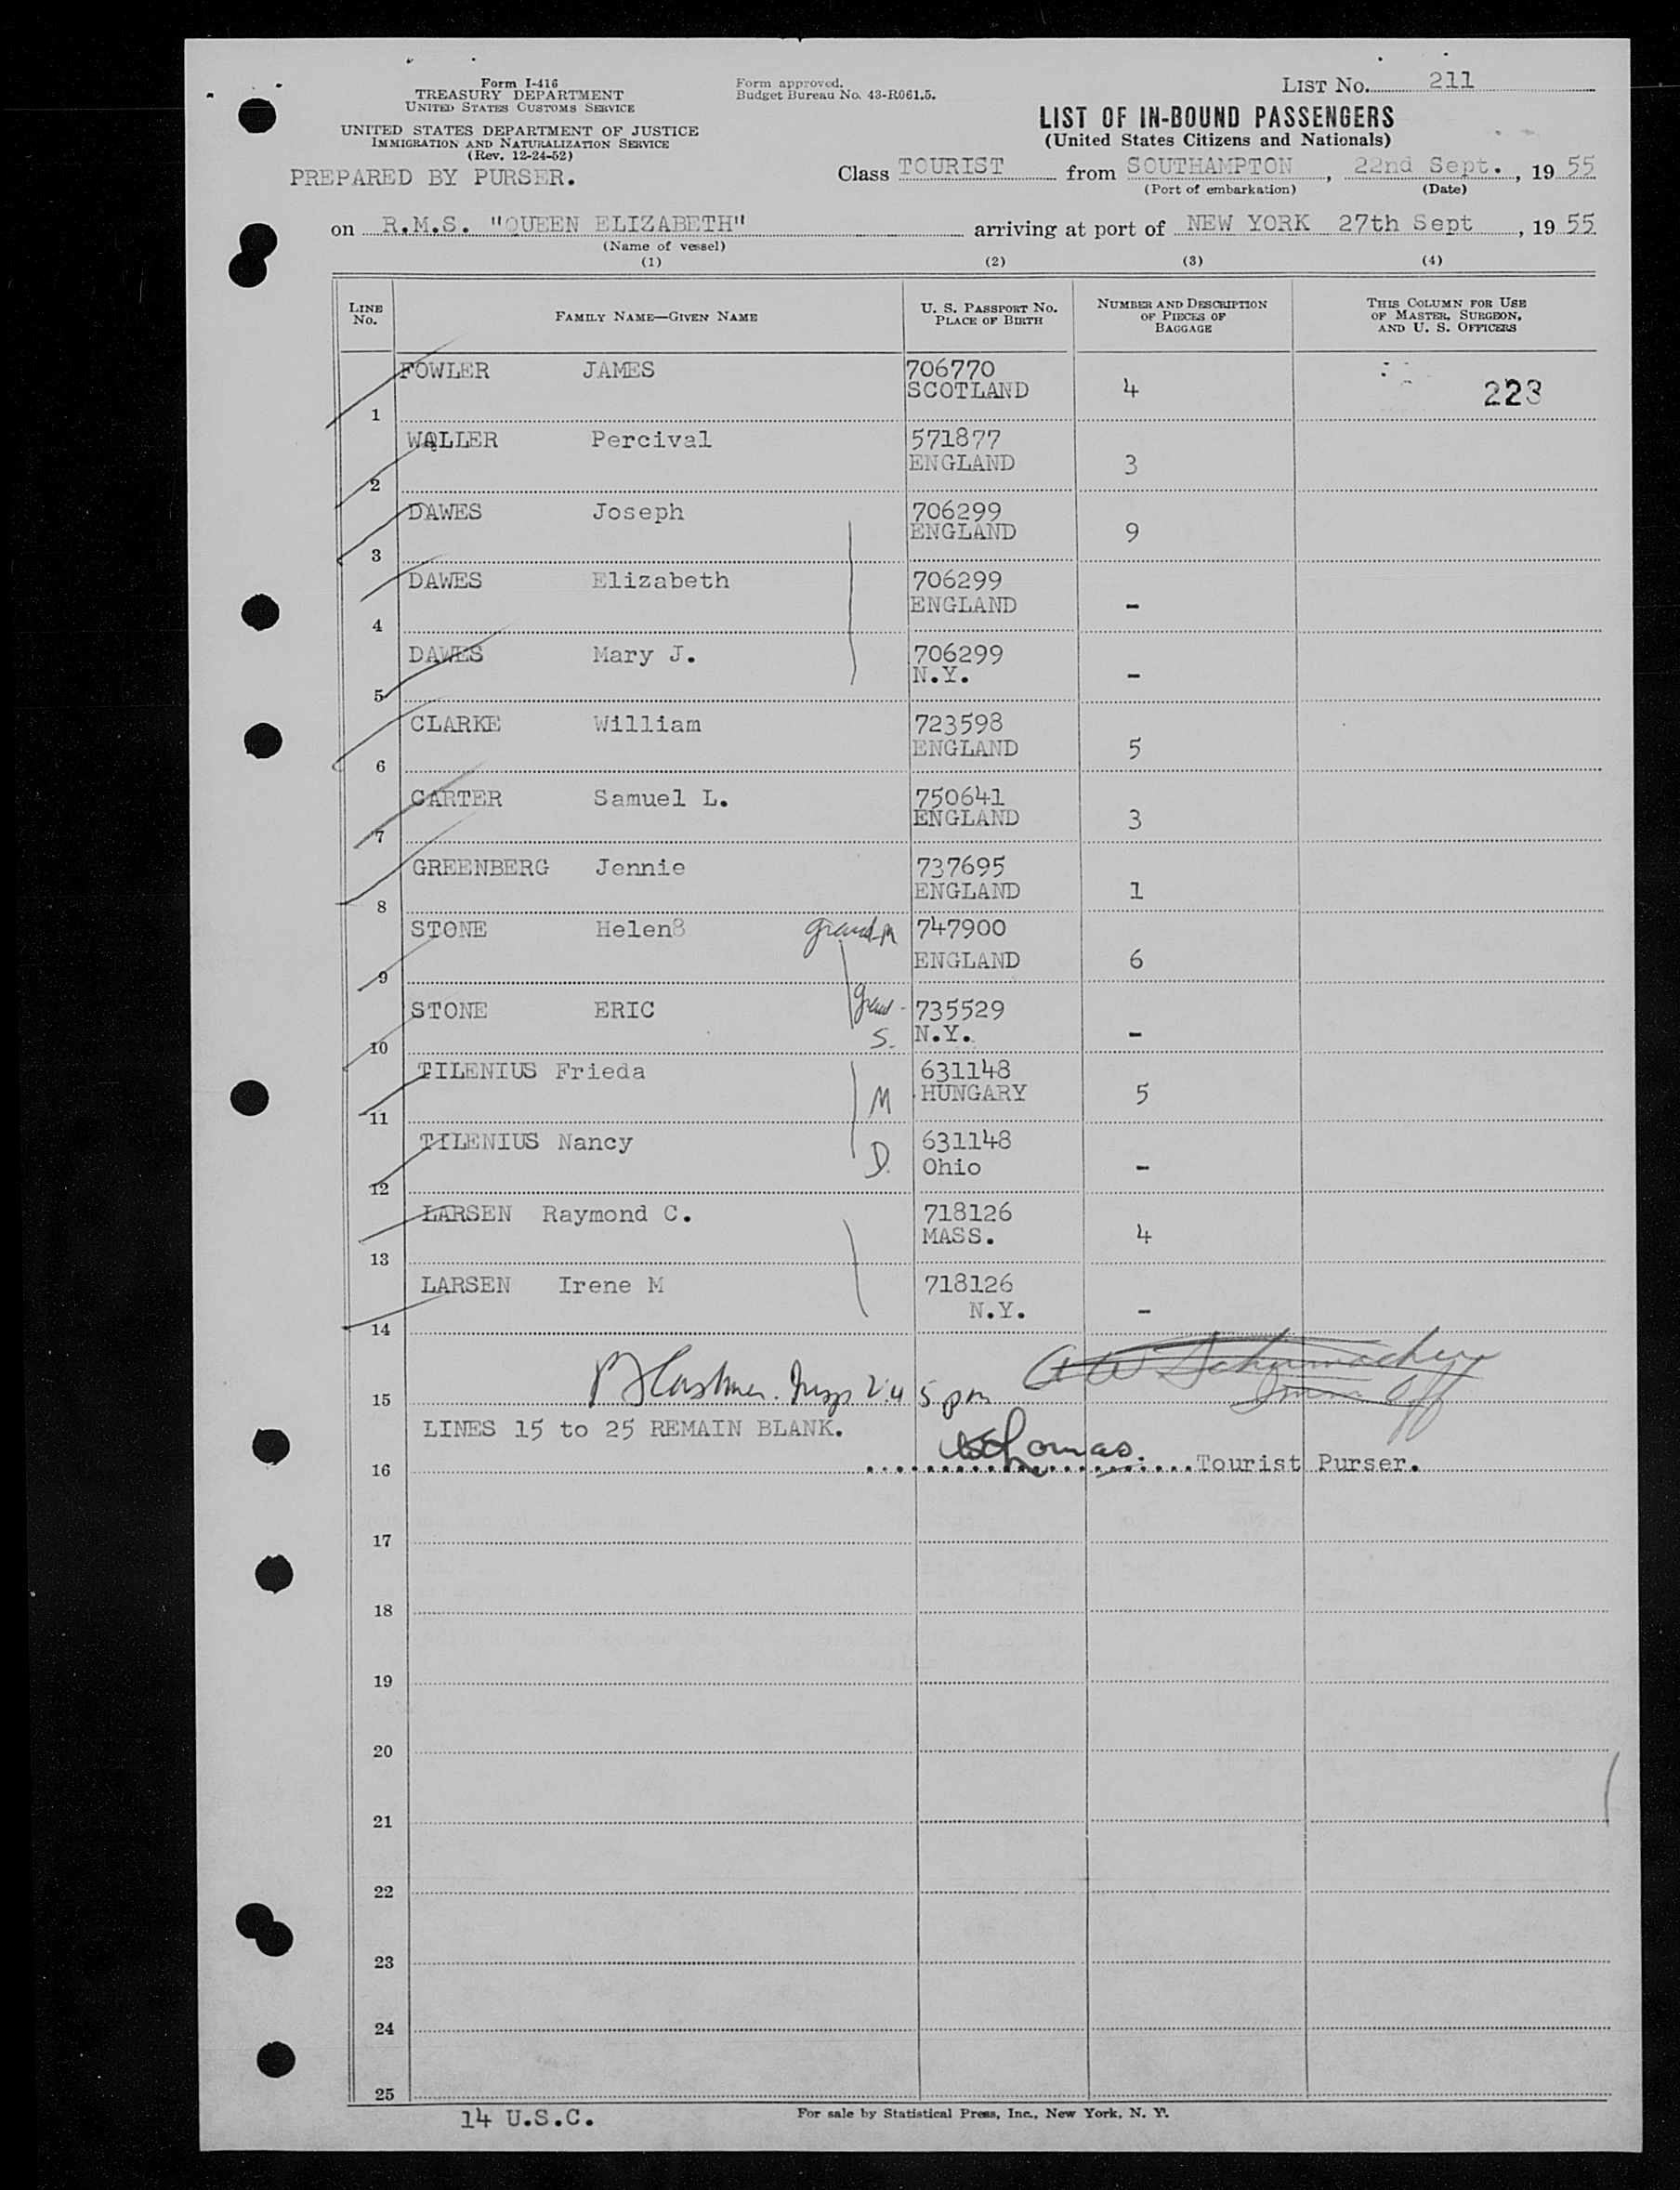 Form I-416
TREASURY DEPARTMENT
UNITED STATES CUSTOMS SERVICE
UNITED STATES DEPARTMENT OF JUSTICE
IMMIGRATION AND NATURALIZATION SERVICE
(Rev. 12-24-52)
PREPARED BY PURSER.
Form approved.
Budget Bureau No. 43-R061.5.
LIST No. 211
LIST OF IN-BOUND PASSENGERS
(United States Citizens and Nationals)
Class TOURIST from SOUTHAMPTON, 22nd Sept., 19 55
(Port of embarkation) (Date)
on R.M.S. "QUEEN ELIZABETH" arriving at port of NEW YORK 27th Sept, 19 55
(Name of vessel)
(1) (2) (3) (4)
LINE No. FAMILY NAME—GIVEN NAME U. S. PASSPORT No. PLACE OF BIRTH NUMBER AND DESCRIPTION OF PIECES OF BAGGAGE THIS COLUMN FOR USE OF MASTER, SURGEON, AND U. S. OFFICERS
FOWLER JAMES 706770
SCOTLAND 4 223
1
WALLER Percival 571877
ENGLAND 3
2
DAWES Joseph 706299
ENGLAND 9
3
DAWES Elizabeth 706299
ENGLAND -
4
DAWES Mary J. 706299
N.Y. -
5
CLARKE William 723598
ENGLAND 5
6
CARTER Samuel L. 750641
ENGLAND 3
7
GREENBERG Jennie 737695
ENGLAND 1
8
STONE Helen8 grand-M 747900
ENGLAND 6
9
STONE ERIC 735529
S. N.Y. -
10
TILENIUS Frieda 631148
M HUNGARY 5
11
TILENIUS Nancy 631148
D. Ohio -
12
LARSEN Raymond C. 718126
MASS. 4
13
LARSEN Irene M 718126
N.Y. -
14
A W Schumacher
Imm Off
15 2:45 pm
LINES 15 to 25 REMAIN BLANK.
Thomas.
16 Tourist Purser.
17
18
19
20
21
22
23
24
25
14 U.S.C.
For sale by Statistical Press, Inc., New York, N. Y.